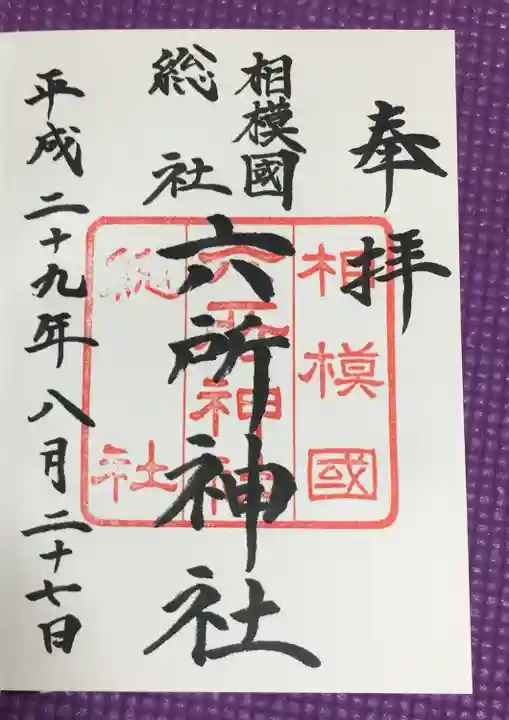 奉拝
相模國
総社
六所神社
平成二十九年八月二十七日
相模國
六所神社
総社